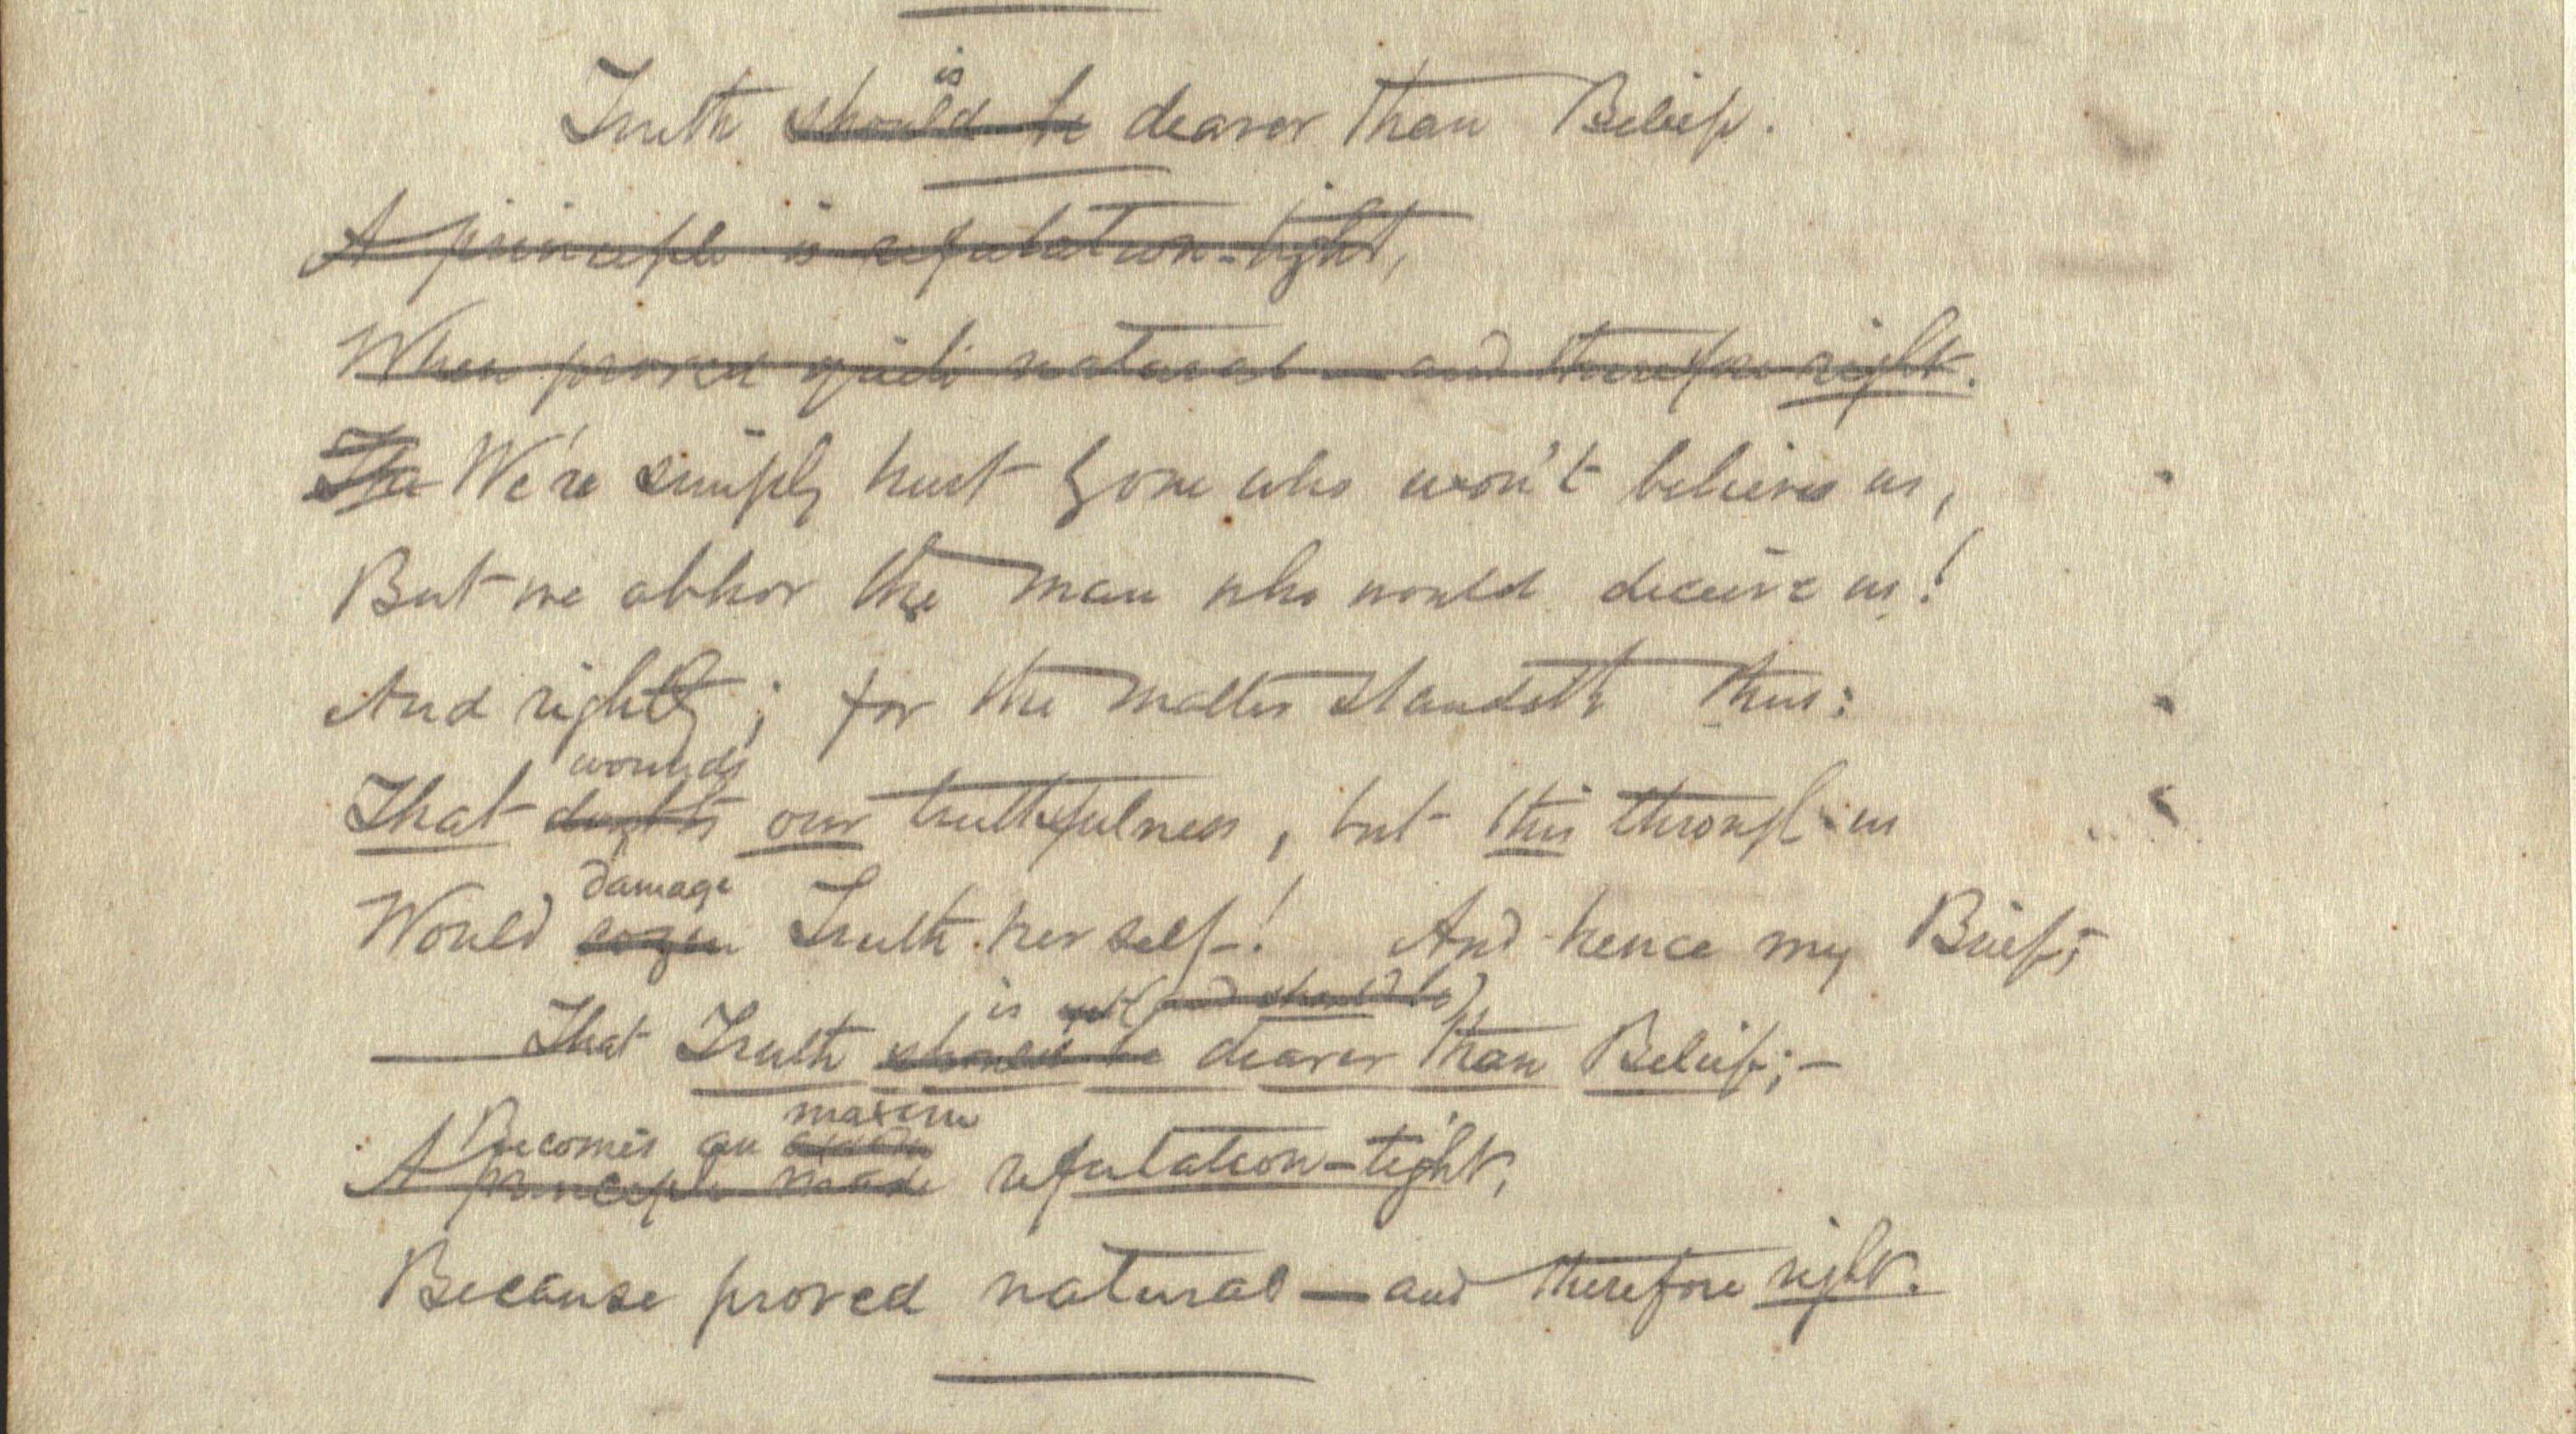 is
Truth should be dearer than Belief.
A principle is refutation-tight,
When proved quite natural — and therefore right.
The We're simply hurt by one who won't believe us,
But we abhor the man who would deceive us!
And rightly; for the matter standeth thus:
wounds
That doubts our truthfulness, but this through us
damage
Would cozen Truth herself! And hence my Brief;
is (and should be)
— That Truth should be dearer than Belief;—
maxim
Becomes an axiom
A principle made refutation-tight,
Because proved natural — and therefore right.